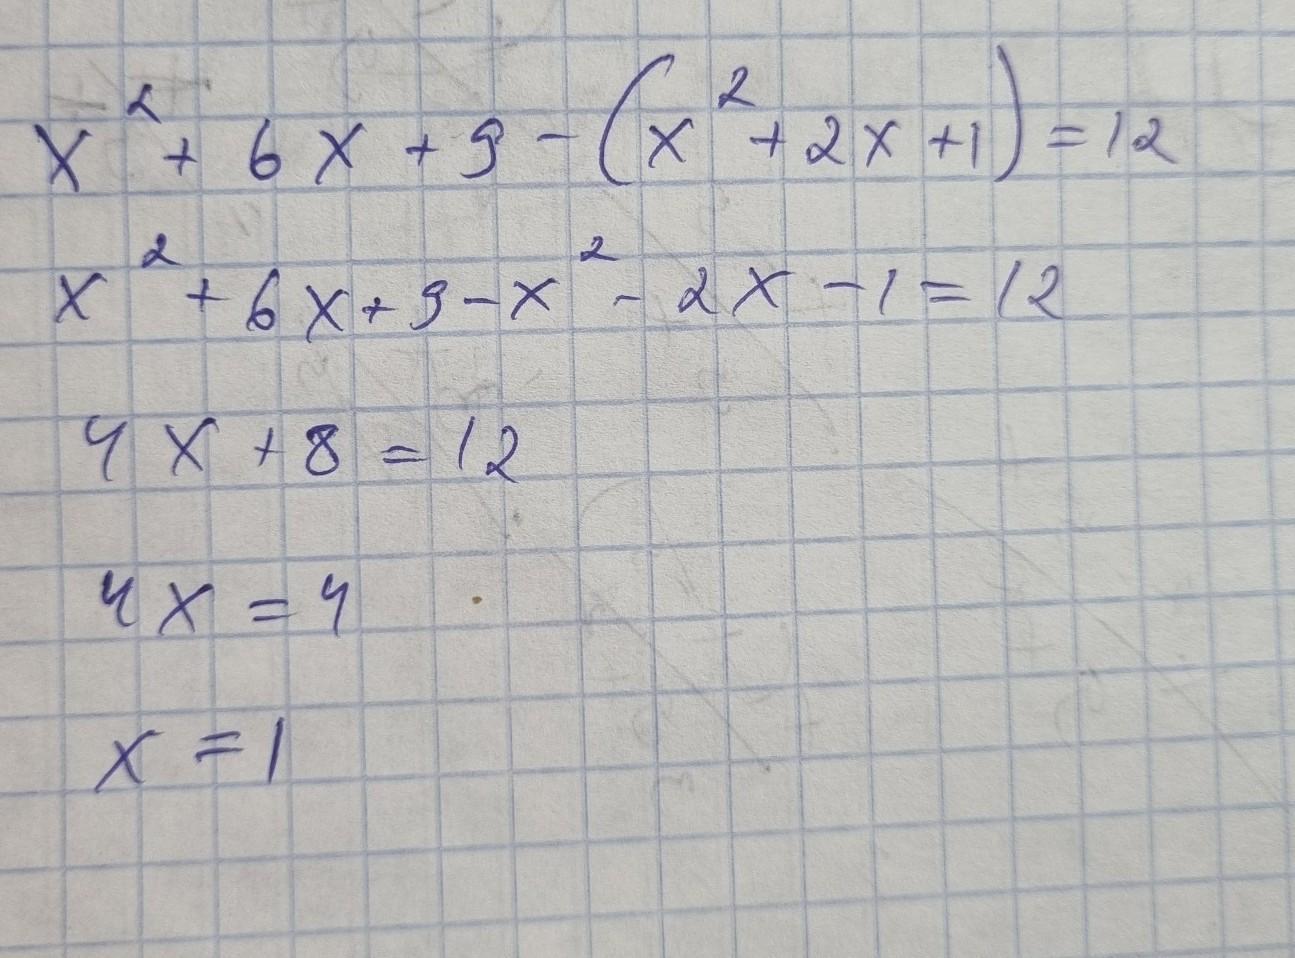 x² + 6x + 9 - (x² + 2x + 1) = 12
x² + 6x + 9 - x² - 2x - 1 = 12
4x + 8 = 12
4x = 4
x = 1